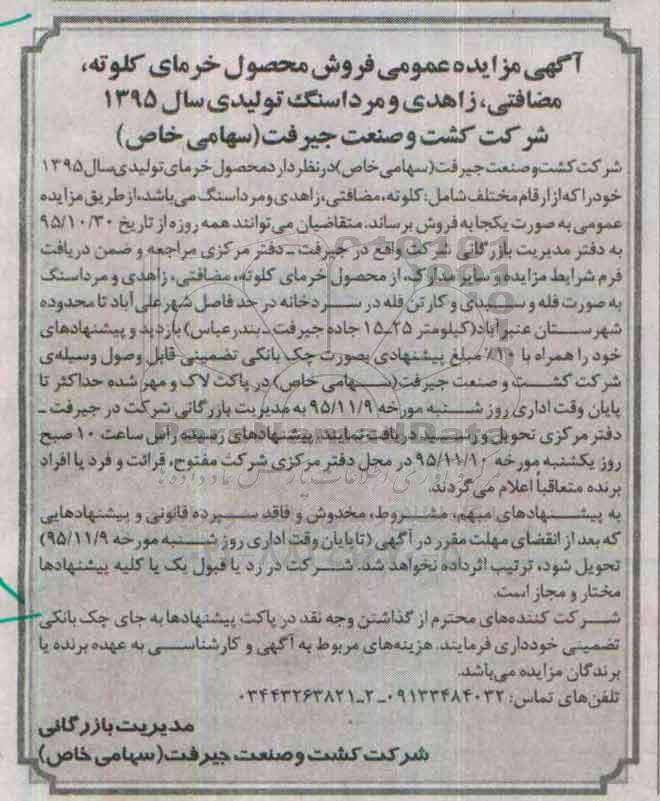 آگهی مزایده عمومی فروش محصول خرمای کلوته،
مضافتی، زاهدی و مرداسنگ تولیدی سال ۱۳۹۵
شرکت کشت و صنعت جیرفت (سهامی خاص)
شرکت کشت و صنعت جیرفت (سهامی خاص) در نظر دارد محصول خرمای تولیدی سال ۱۳۹۵
خود را که از ارقام مختلف شامل: کلوته، مضافتی، زاهدی و مرداسنگ می‌باشد، از طریق مزایده
عمومی به صورت یکجا به فروش برساند. متقاضیان می‌توانند همه روزه از تاریخ ۹۵/۱۰/۳۰
به دفتر مدیریت بازرگانی شرکت واقع در جیرفت ـ دفتر مرکزی مراجعه و ضمن دریافت
فرم شرایط مزایده و سایر مدارک، از محصول خرمای کلوته، مضافتی، زاهدی و مرداسنگ
به صورت فله و سبدی و کارتن فله در سردخانه در حد فاصل شهر علی‌آباد تا محدوده
شهرستان عنبرآباد (کیلومتر ۲۵ـ۱۵ جاده جیرفت ـ بندرعباس) بازدید و پیشنهادهای
خود را همراه با ۱۰٪ مبلغ پیشنهادی بصورت چک بانکی تضمینی قابل وصول وسیله‌ی
شرکت کشت و صنعت جیرفت (سهامی خاص) در پاکت لاک و مهر شده حداکثر تا
پایان وقت اداری روز شنبه مورخه ۹۵/۱۱/۹ به مدیریت بازرگانی شرکت در جیرفت ـ
دفتر مرکزی تحویل و رسید دریافت نمایند. پیشنهادهای رسیده راس ساعت ۱۰ صبح
روز یکشنبه مورخه ۹۵/۱۱/۱۰ در محل دفتر مرکزی شرکت مفتوح، قرائت و فرد یا افراد
برنده متعاقباً اعلام می‌گردند.
به پیشنهادهای مبهم، مشروط، مخدوش و فاقد سپرده قانونی و پیشنهادهایی
که بعد از انقضای مهلت مقرر در آگهی (تا پایان وقت اداری روز شنبه مورخه ۹۵/۱۱/۹)
تحویل شود، ترتیب اثر داده نخواهد شد. شرکت در رد یا قبول یک یا کلیه پیشنهادها
مختار و مجاز است.
شرکت کننده‌های محترم از گذاشتن وجه نقد در پاکت پیشنهادها به جای چک بانکی
تضمینی خودداری فرمایند. هزینه‌های مربوط به آگهی و کارشناسی به عهده برنده یا
برندگان مزایده می‌باشد.
تلفن‌های تماس: ۰۹۱۳۳۴۸۴۰۳۲ ـ ۲ـ۰۳۴۴۳۲۶۳۸۲۱
مدیریت بازرگانی
شرکت کشت و صنعت جیرفت (سهامی خاص)
ParsNamadData